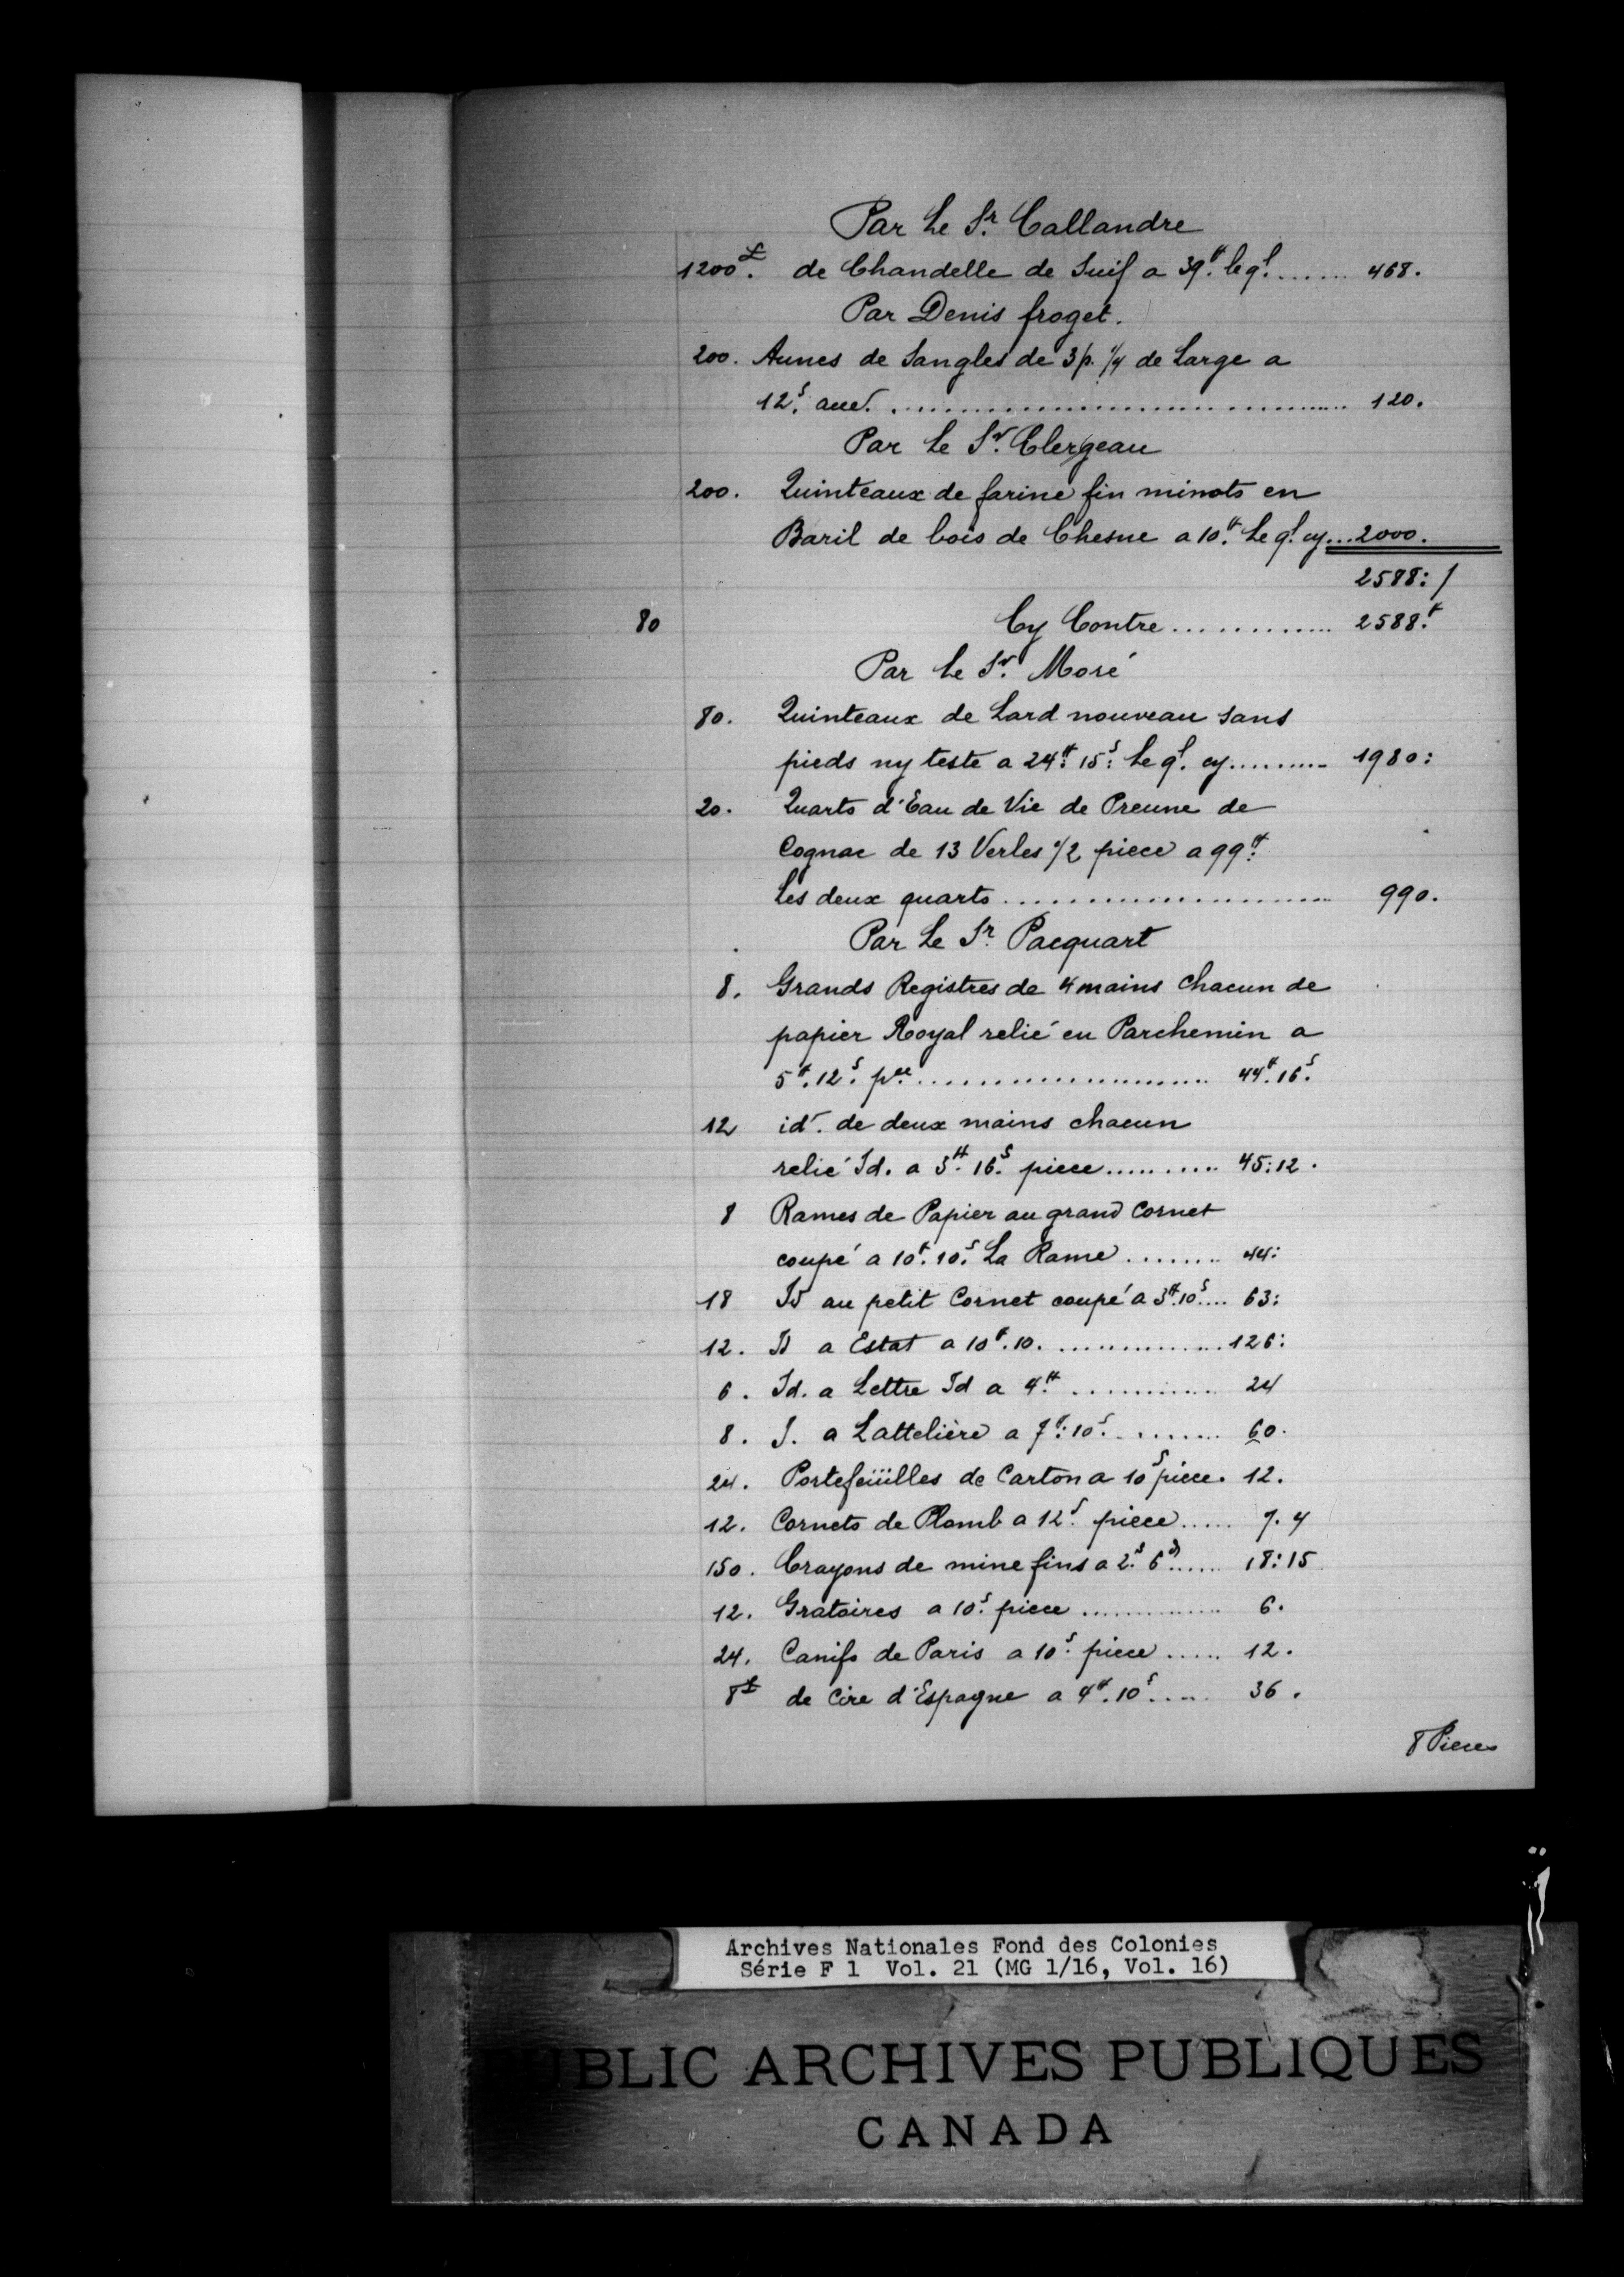 Par Le Sr. Callandre
1200 ₶. de Chandelle de Suif a 39₶. le ql. ....... 468.
Par Denis froget.
200. Aunes de Sangles de 3 p. 1/4 de Large a
12s. aue. ................................. 120.
Par Le Sr. Clergeau
200. Quinteaux de farine fin minots en
Baril de bois de Chesne a 10₶. Le ql. cy... 2000.
2588: /
80 Cy Contre ............. 2588₶.
Par Le Sr. Moré
80. Quinteaux de Lard nouveau sans
pieds ny teste a 24₶: 15s: Le ql. cy.......... 1980:
20. Quarts d'Eau de Vie de Preune de
Cognac de 13 Verles 1/2 piece a 99₶:
Les deux quarts ........................ 990.
Par Le Sr. Pacquart
8. Grands Registres de 4 mains Chacun de
papier Royal relié en Parchemin a
5₶. 12s. pce. ..................... 44₶. 16s.
12 id. de deux mains chacun
relié Id. a 3₶. 16s. piece .......... 45:12.
8 Rames de Papier au grand Cornet
coupé a 10₶. 10s. La Rame ........ 44:
18 Id au petit Cornet coupé a 3₶. 10s.... 63:
12. Id a Estat a 10₶. 10. ............... 126:
6. Id. a Lettre Id a 4₶. ............. 24
8. I. a Lattelière a 7₶: 10s. ......... 60.
24. Portefeüilles de Carton a 10s piece. 12.
12. Cornets de Plomb a 12s. piece ..... 7. 4
150. Crayons de mine fins a 2s. 6d. ..... 18:15
12. Gratoires a 10s. piece ............. 6.
24. Canifs de Paris a 10s. piece ..... 12.
8 ₶ de Cire d'Espagne a 4₶. 10s..... 36.
8 Pieces
Archives Nationales Fond des Colonies
Série F 1 Vol. 21 (MG 1/16, Vol. 16)
PUBLIC ARCHIVES PUBLIQUES
CANADA